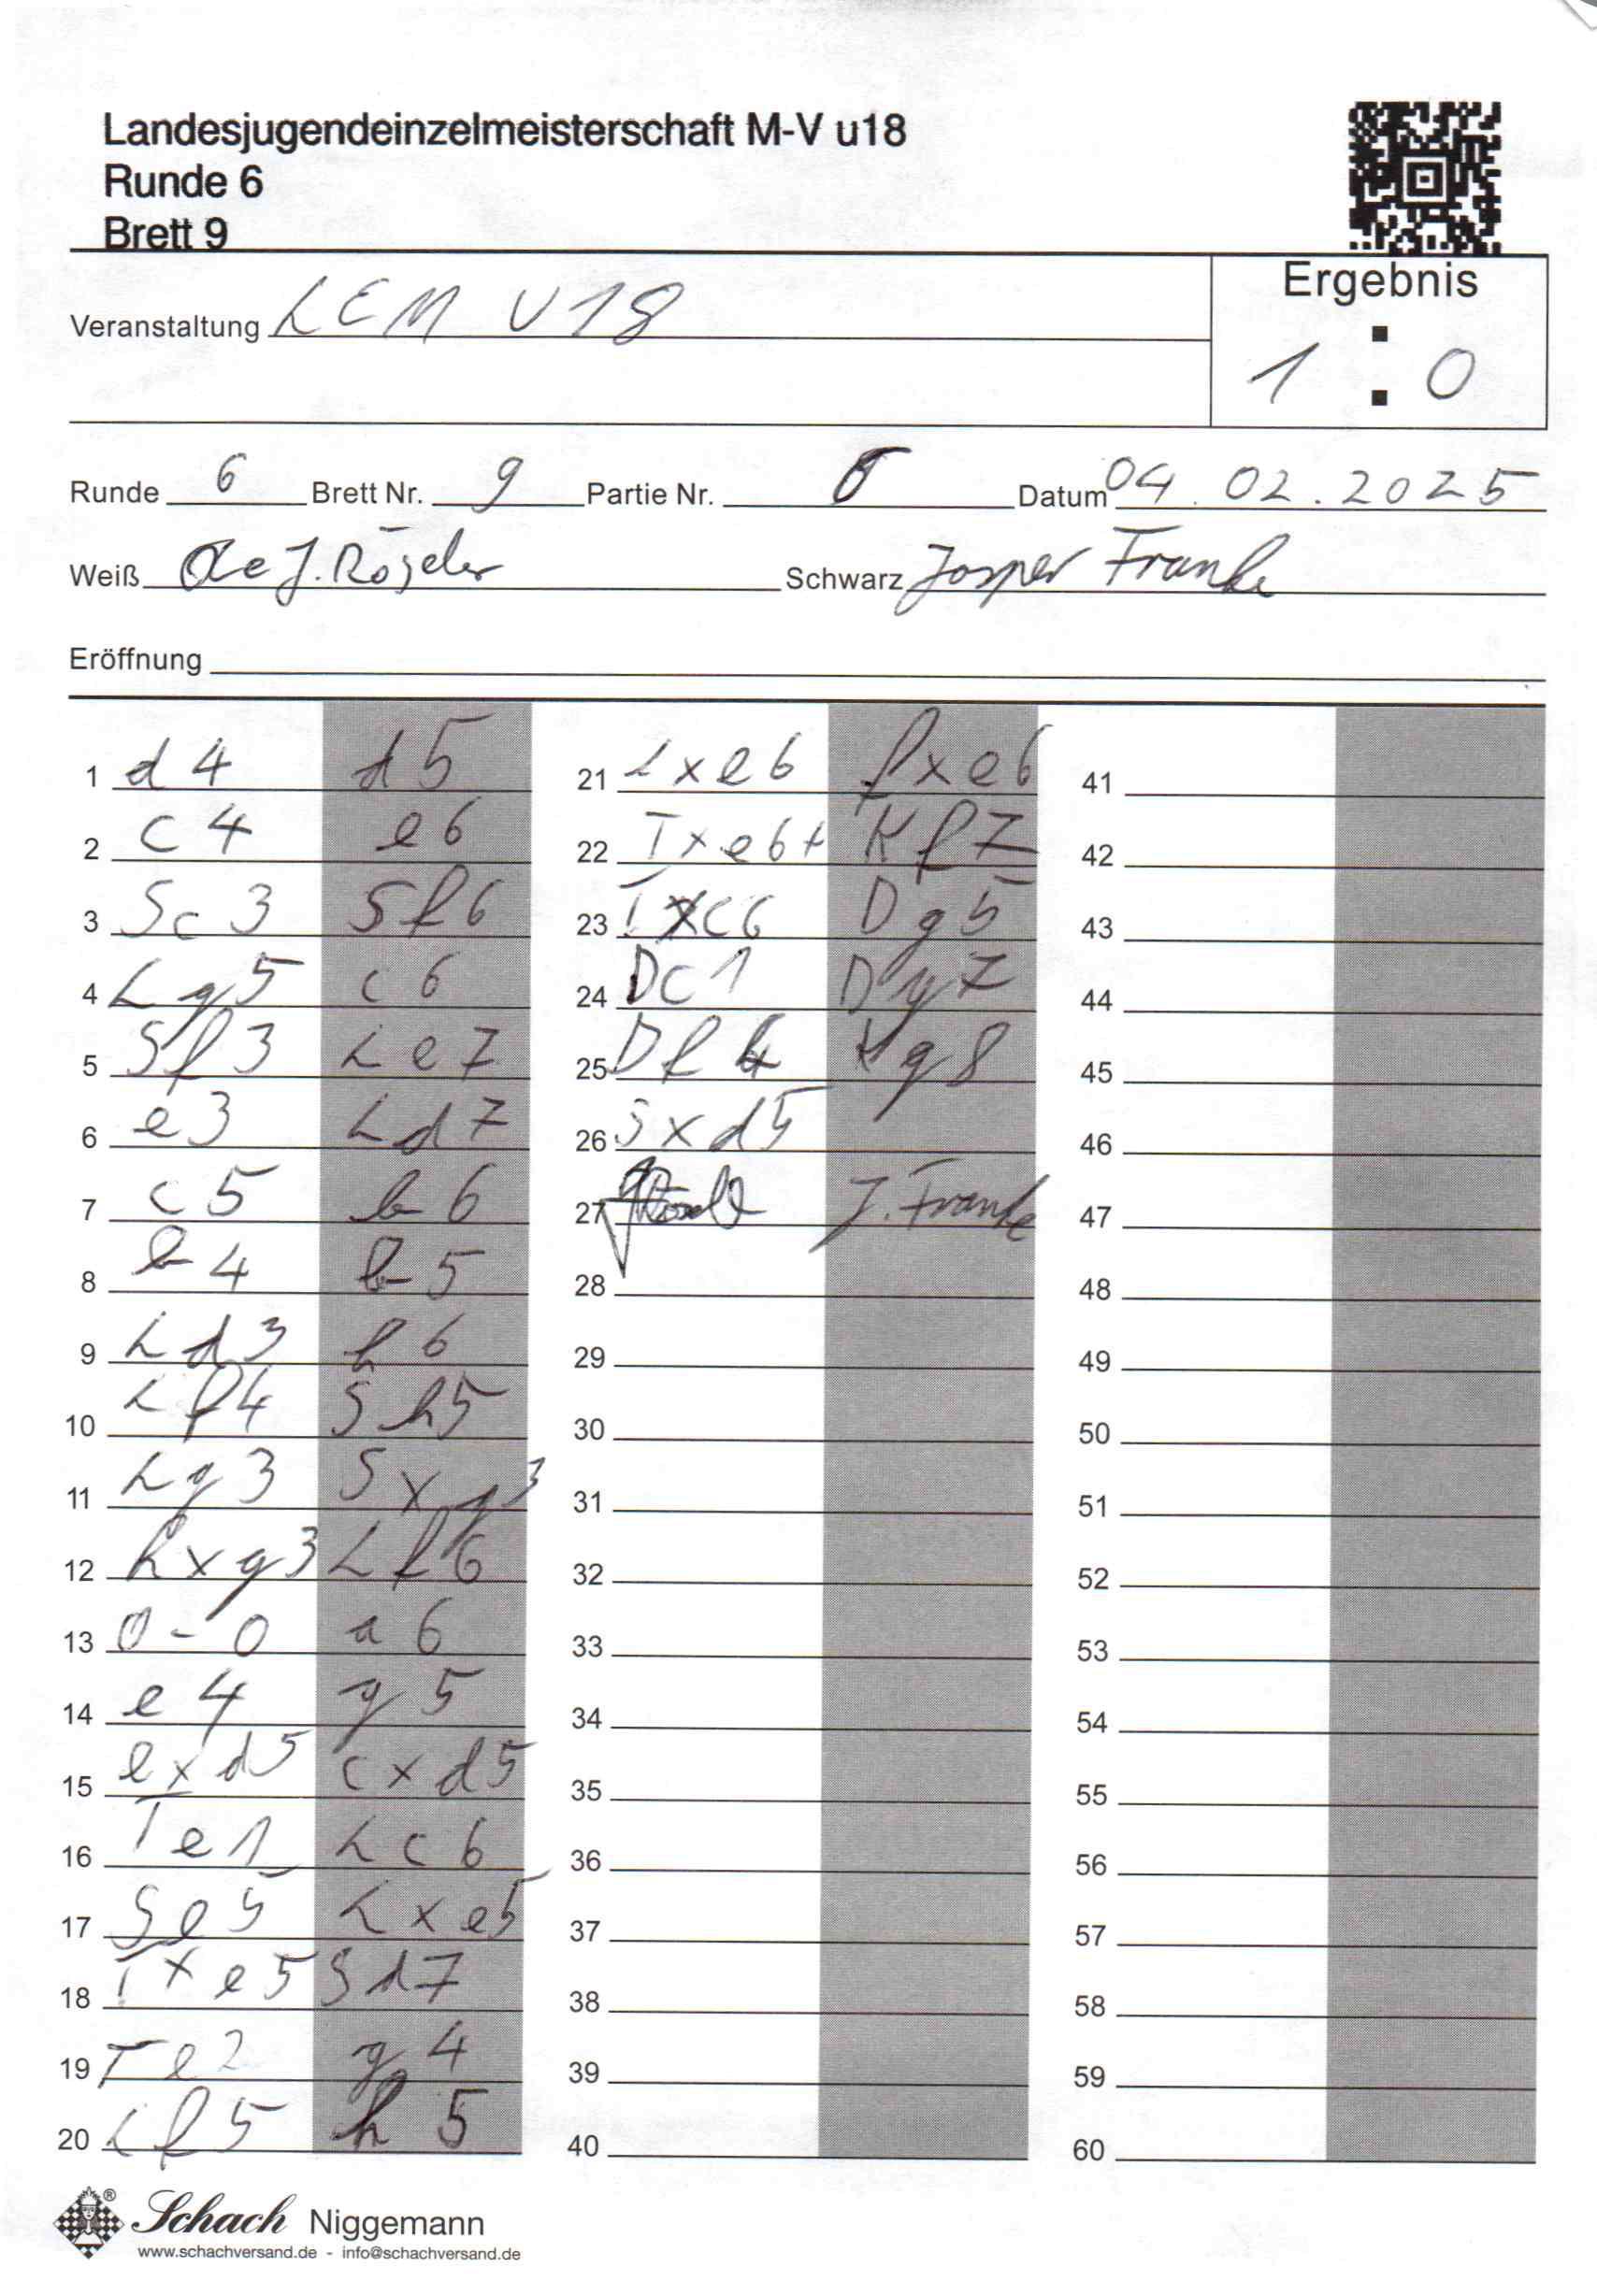 Landesjugendeinzelmeisterschaft M-V u18
Runde 6
Brett 9
Ergebnis
Veranstaltung LEM U18
1 : 0
Runde 6 Brett Nr. 9 Partie Nr. Datum 04.02.2025
Weiß J. Schwarz Jasper Franke
Eröffnung
1 d4 d5
2 c4 e6
3 Sc3 Sf6
4 Lg5 c6
5 Sf3 Le7
6 e3 Ld7
7 c5 b6
8 b4 b5
9 Ld3 h6
10 Lf4 Sh5
11 Lg3 Sxg3
12 hxg3 Lf6
13 0-0 a6
14 e4 g5
15 exd5 cxd5
16 Te1 Lc6
17 Se5 Lxe5
18 Txe5 Sd7
19 Te2 g4
20 Lf5 h5
21 Lxe6 fxe6
22 Txe6+ Kf7
23 Txc6 Dg5
24 Dc1 Dg7
25 Df4 Kg8
26 Sxd5
27 J. Franke
28
29
30
31
32
33
34
35
36
37
38
39
40
41
42
43
44
45
46
47
48
49
50
51
52
53
54
55
56
57
58
59
60
Schach Niggemann
www.schachversand.de - info@schachversand.de